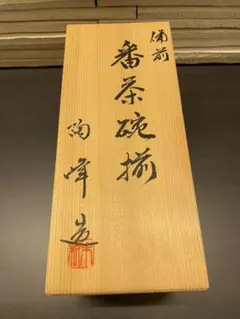 備前
番茶碗揃
陶峰造